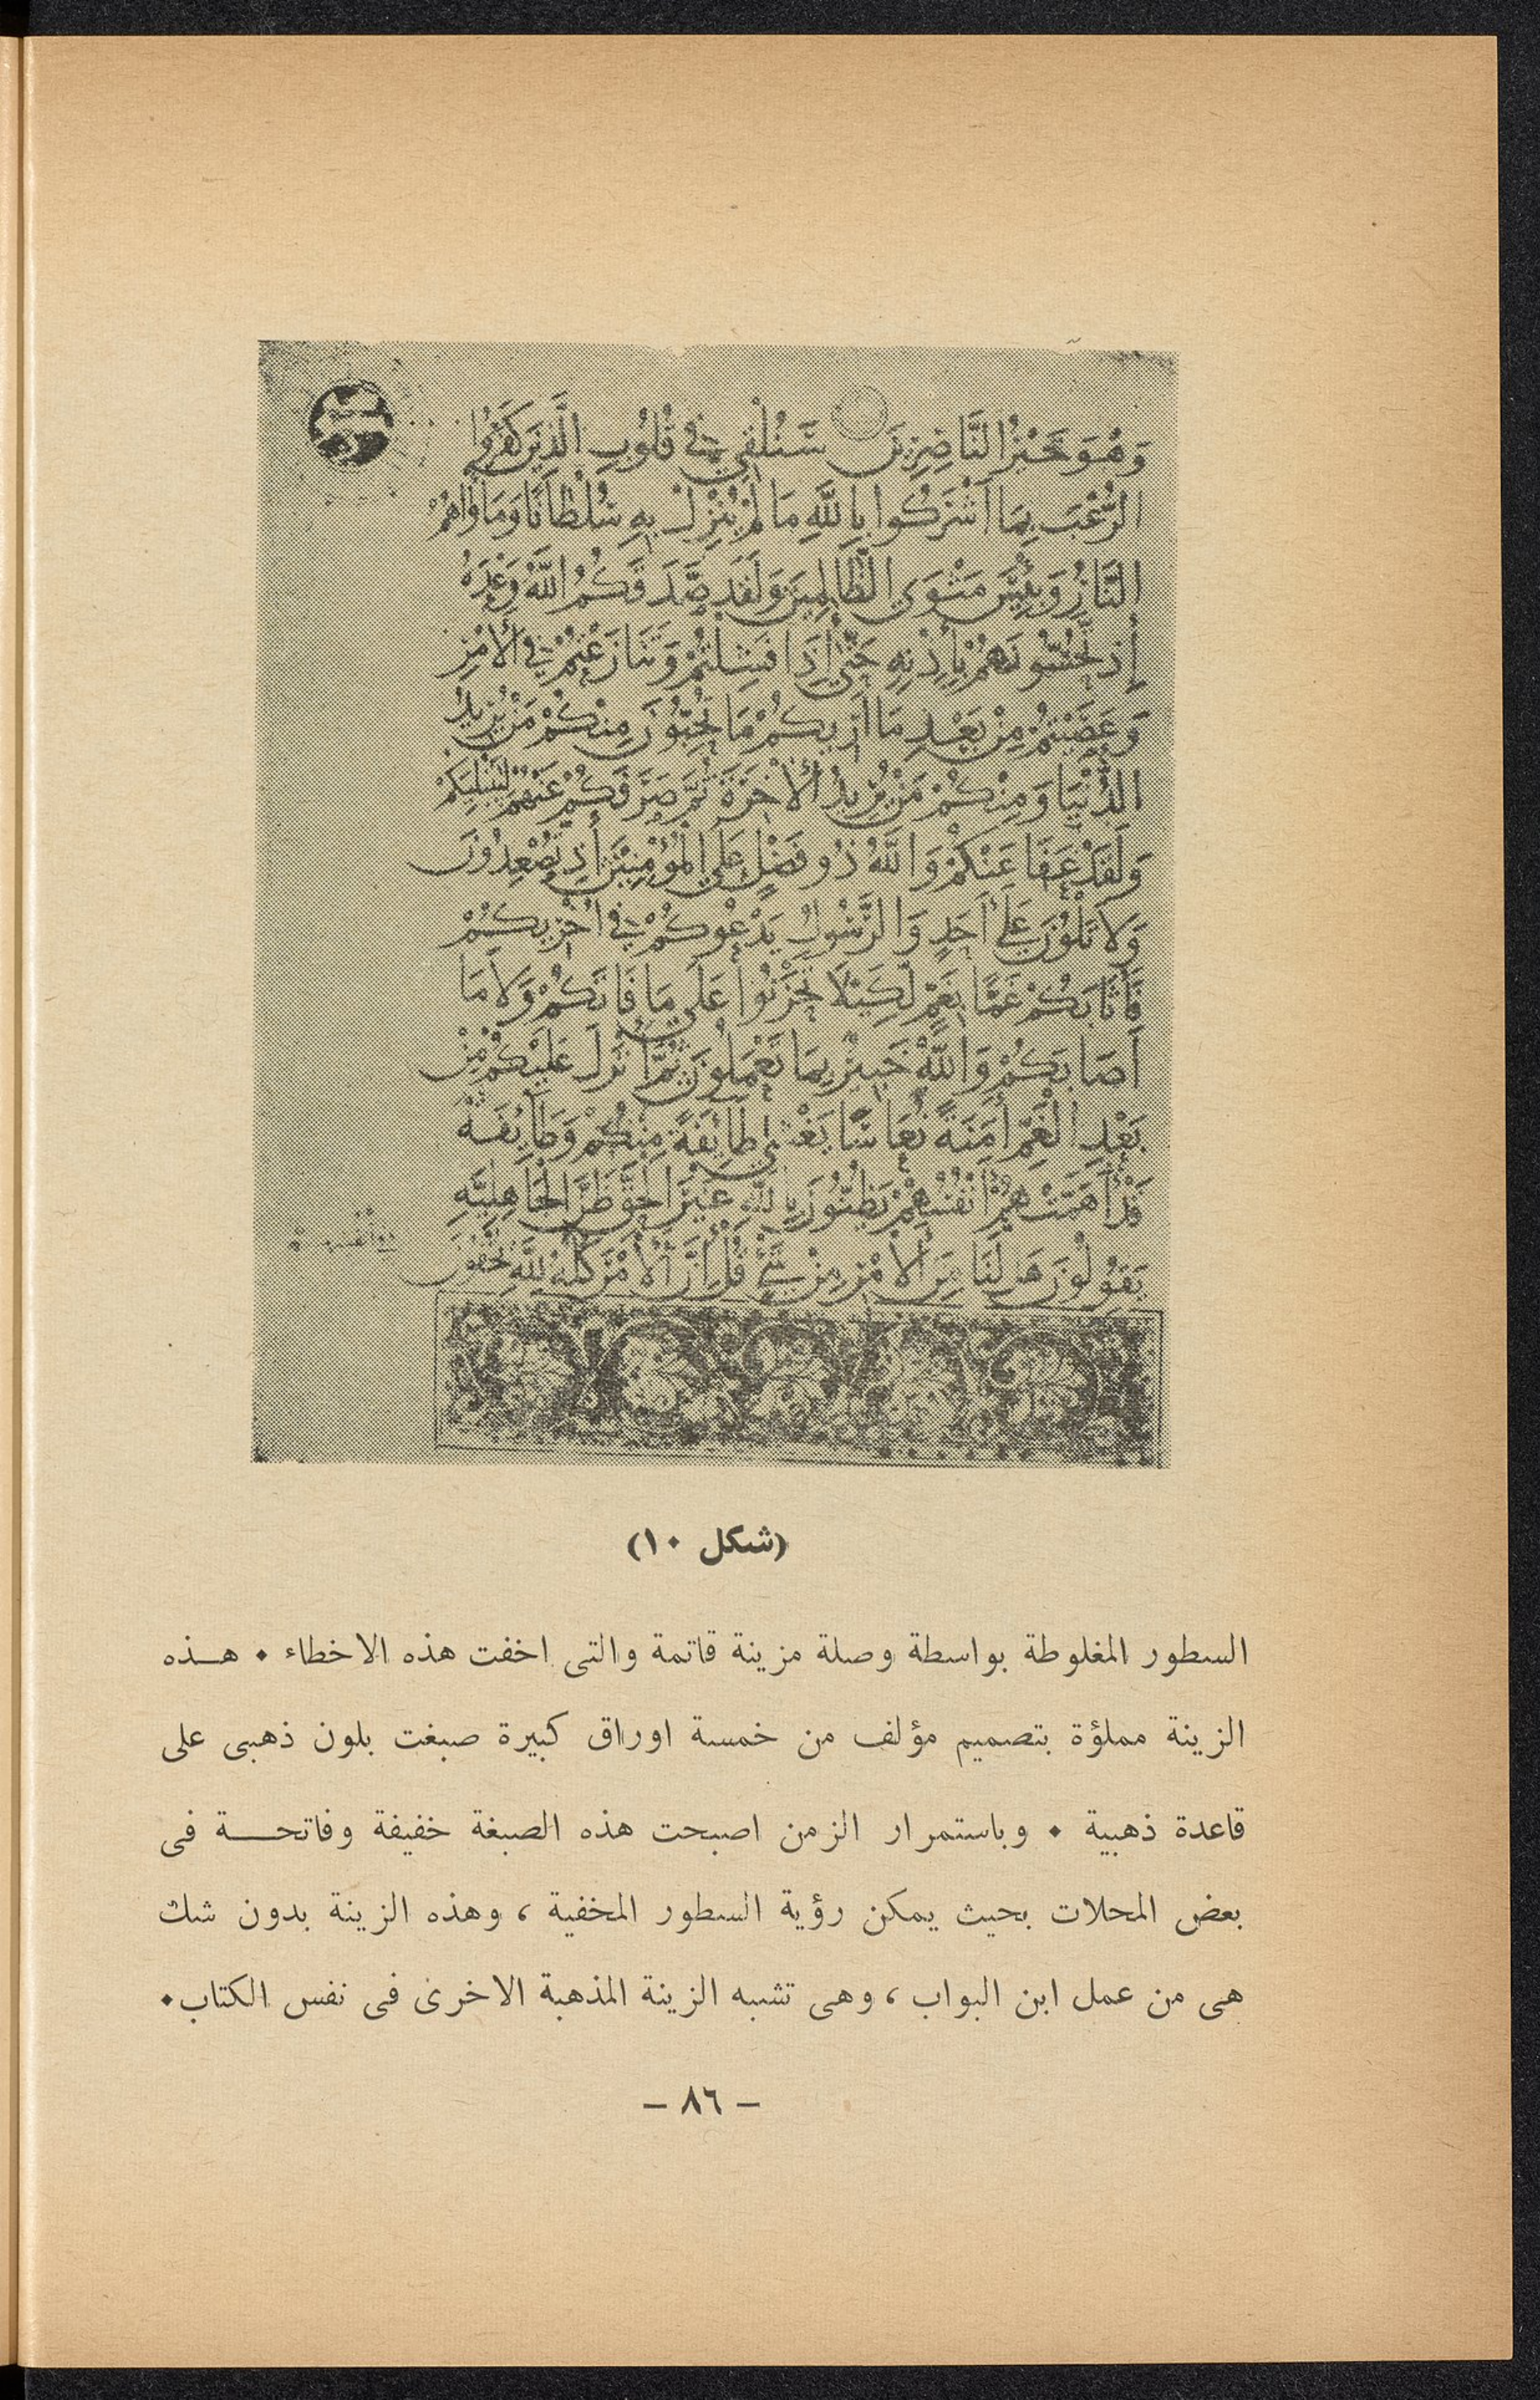 وَهُوَ خَيْرُ النَّاصِرِينَ سَنُلْقِي فِي قُلُوبِ الَّذِينَ كَفَرُوا
الرُّعْبَ بِمَا أَشْرَكُوا بِاللَّهِ مَا لَمْ يُنَزِّلْ بِهِ سُلْطَانًا وَمَأْوَاهُمُ
النَّارُ وَبِئْسَ مَثْوَى الظَّالِمِينَ وَلَقَدْ صَدَقَكُمُ اللَّهُ وَعْدَهُ
إِذْ تَحُسُّونَهُمْ بِإِذْنِهِ حَتَّى إِذَا فَشِلْتُمْ وَتَنَازَعْتُمْ فِي الْأَمْرِ
وَعَصَيْتُمْ مِنْ بَعْدِ مَا أَرَيكُمْ مَا تُحِبُّونَ مِنْكُمْ مَنْ يُرِيدُ
الدُّنْيَا وَمِنْكُمْ مَنْ يُرِيدُ الْآخِرَةَ ثُمَّ صَرَفَكُمْ عَنْهُمْ لِيَبْتَلِيَكُمْ
وَلَقَدْ عَفَا عَنْكُمْ وَاللَّهُ ذُو فَضْلٍ عَلَى الْمُؤْمِنِينَ إِذْ تُصْعِدُونَ
وَلَا تَلْوُنَ عَلَى أَحَدٍ وَالرَّسُولُ يَدْعُوكُمْ فِي أُخْرَيكُمْ
فَأَثَابَكُمْ غَمًّا بِغَمٍّ لِكَيْلَا تَحْزَنُوا عَلَى مَا فَاتَكُمْ وَلَا مَا
أَصَابَكُمْ وَاللَّهُ خَبِيرٌ بِمَا تَعْمَلُونَ ثُمَّ أَنْزَلَ عَلَيْكُمْ مِنْ
بَعْدِ الْغَمِّ أَمَنَةً نُعَاسًا يَغْشَى طَائِفَةً مِنْكُمْ وَطَائِفَةٌ
قَدْ أَهَمَّتْهُمْ أَنْفُسُهُمْ يَظُنُّونَ بِاللَّهِ غَيْرَ الْحَقِّ ظَنَّ الْجَاهِلِيَّةِ
يَقُولُونَ هَلْ لَنَا مِنَ الْأَمْرِ مِنْ شَيْءٍ قُلْ إِنَّ الْأَمْرَ كُلَّهُ لِلَّهِ يُخْفُونَ
(شكل ١٠)
السطور المغلوطة بواسطة وصلة مزينة قاتمة والتى اخفت هذه الاخطاء ٠ هـــذه
الزينة مملؤة بتصميم مؤلف من خمسة اوراق كبيرة صبغت بلون ذهبى على
قاعدة ذهبية ٠ وباستمرار الزمن اصبحت هذه الصبغة خفيفة وفاتحـــة فى
بعض المحلات بحيث يمكن رؤية السطور المخفية ، وهذه الزينة بدون شك
هى من عمل ابن البواب ، وهى تشبه الزينة المذهبة الاخرى فى نفس الكتاب٠
– ٨٦ –